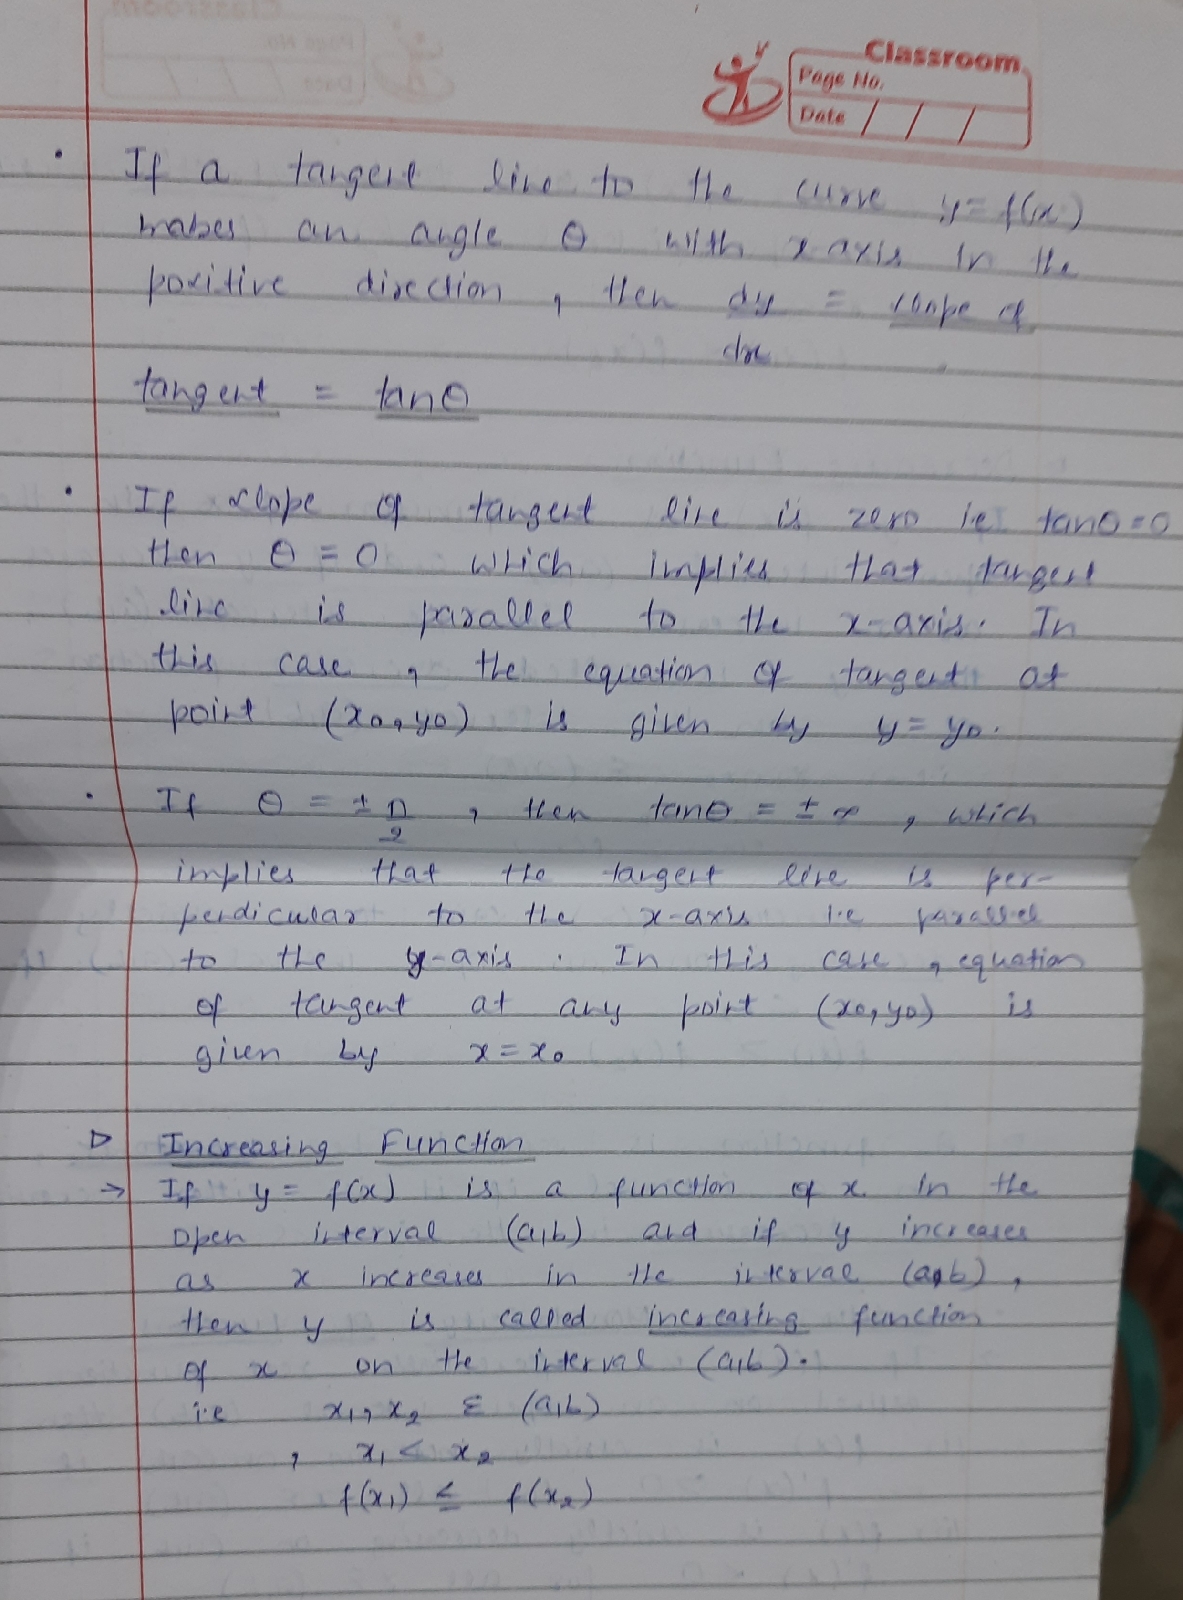 Classroom
Page No.
Date / / /
• If a tangent line to the curve y = f(x)
makes an angle θ with x axis in the
positive direction, then dy = slope of
dx
tangent = tanθ
• If slope of tangent line is zero ie tanθ=0
then θ = 0 which implies that tangent
line is parallel to the x-axis. In
this case, the equation of tangent at
point (x₀,y₀) is given by y = y₀.
• If θ = ± π/2, then tanθ = ± ∞, which
implies that the tangent line is per-
pendicular to the x-axis i.e parallel
to the y-axis. In this case, equation
of tangent at any point (x₀,y₀) is
given by x = x₀
▷ Increasing Function
→ If y = f(x) is a function of x in the
open interval (a,b) and if y increases
as x increases in the interval (a,b),
then y is called increasing function
of x on the interval (a,b).
i.e x₁, x₂ ε (a,b)
, x₁ < x₂
f(x₁) ≤ f(x₂)